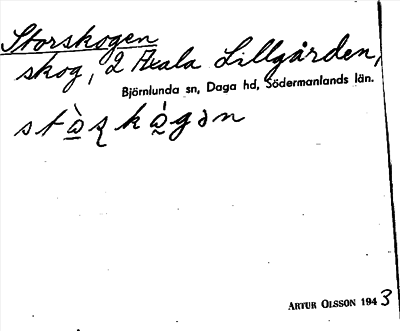 Storskogen
skog, 2 Axala Lillgården,
Björnlunda sn, Daga hd, Södermanlands län.
ARTUR OLSSON 1943